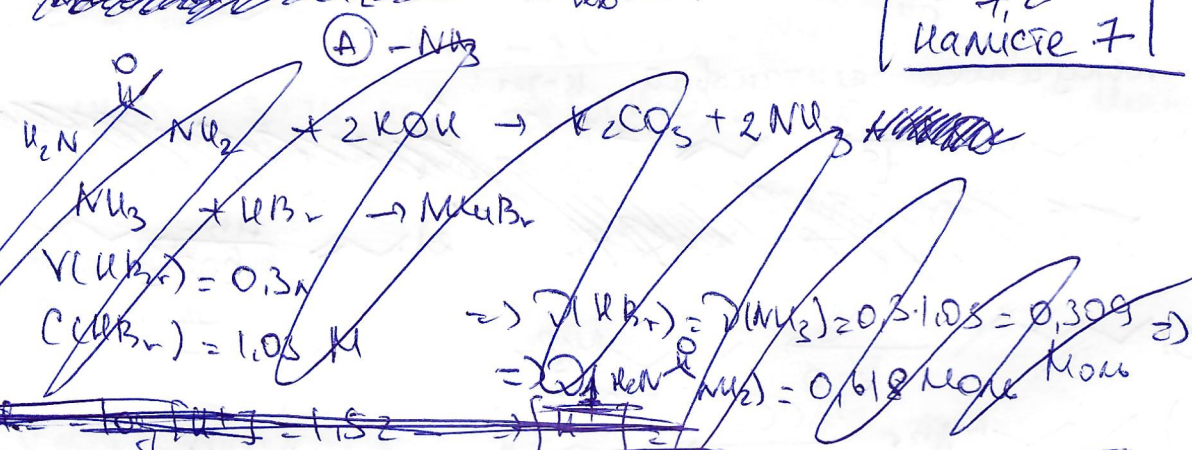 на листе 7
(A) - NH₃
O
H₂N NH₂ + 2KOH → K₂CO₃ + 2NH₃
NH₃ + HBr → NH₄Br
V(HBr) = 0,3л
C(HBr) = 1,03 М
=> ν(HBr) = ν(NH₃) = 0,3·1,03 = 0,309 моль =>
=> ν(H₂N NH₂) = 0,618 моль